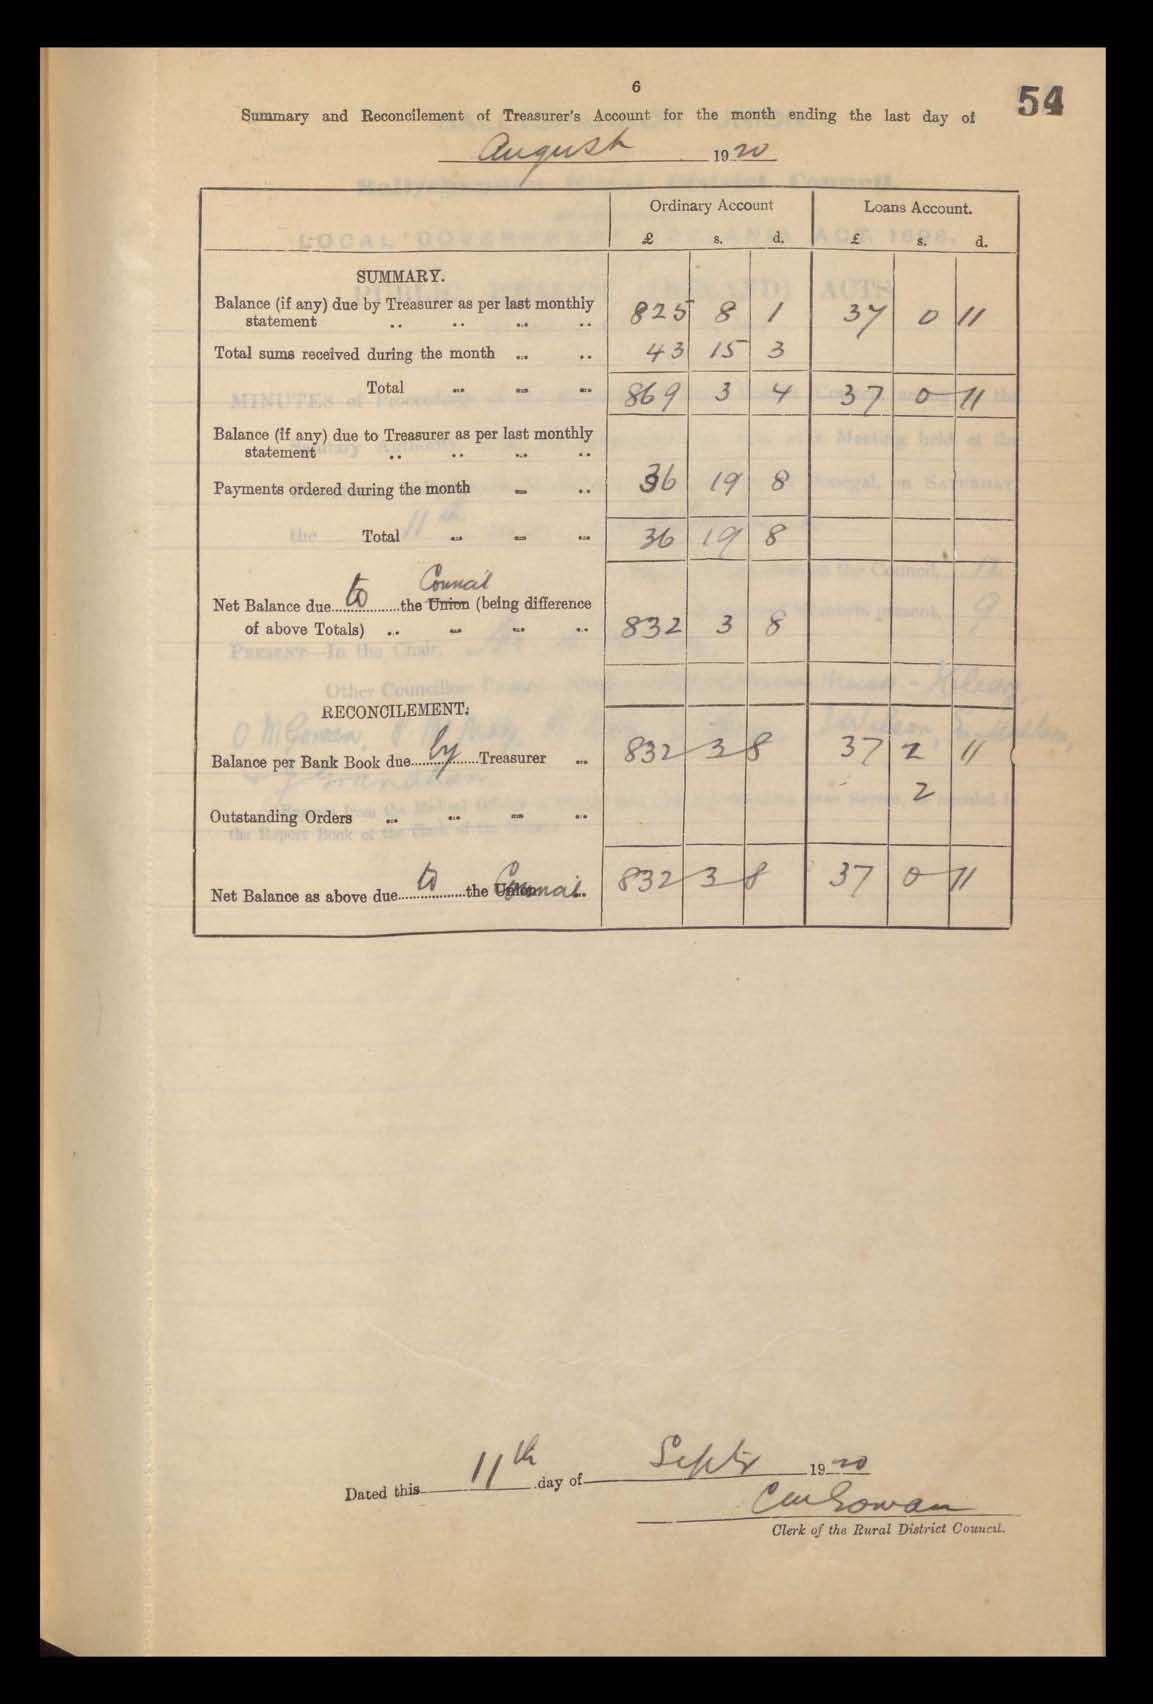 6
54
Summary and Reconcilement of Treasurer's Account for the month ending the last day of
August 1920
Ordinary Account Loans Account.
£ s. d. £ s. d.
SUMMARY.
Balance (if any) due by Treasurer as per last monthly
statement .. .. ... .. 825 8 1 37 0 11
Total sums received during the month ... .. 43 15 3
Total ... ... ... 869 3 4 37 0 11
Balance (if any) due to Treasurer as per last monthly
statement .. .. ... ..
Payments ordered during the month ... .. 36 19 8
Total ... ... ... 36 19 8
Council
Net Balance due to the Union (being difference
of above Totals) .. ... ... .. 832 3 8
RECONCILEMENT:
Balance per Bank Book due by Treasurer ... 832 3 8 37 2 11
2
Outstanding Orders ... ... ... ...
Net Balance as above due to the Union Council .. 832 3 8 37 0 11
Dated this 11th day of Septr 1920
Clerk of the Rural District Council.